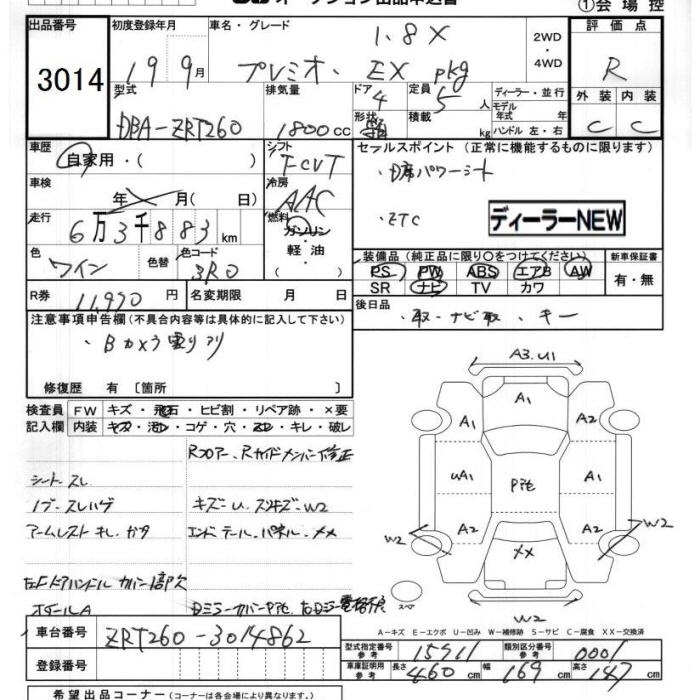 オークション出品申込書
①会場控
出品番号 初度登録年月 車名・グレード 1.8X 2WD・4WD 評価点
3014 19 9月 プレミオ・EX pkg R
型式 排気量 ドア 4 定員 5人 ディーラー・並行 外装 内装
DBA-ZRT260 1800cc 形状 積載 kg モデル年式 年 ハンドル 左・右 C C
車歴 シフト セールスポイント (正常に機能するものに限ります)
自家用・( ) FCVT ・D席パワーシート
車検 年 月 ( 日) 冷房 AAC
走行 6万3千883km 燃料 ガソリン 軽・油 ・ETC ディーラーNEW
色 ワイン 色替 色コード 3R0 装備品 (純正品に限り○をつけてください) 新車保証書
PS PW ABS エアB AW 有・無
SR ナビ TV カワ
R券 11,990円 名変期限 月 日 後日品
・取・ナビ取・キー
注意事項申告欄 (不具合内容等は具体的に記入して下さい)
・Bカメラ曇りアリ
修復歴 有 [箇所 ]
検査員 FW キズ・飛石・ヒビ割・リペア跡・×要
記入欄 内装 キズ・汚レ・コゲ・穴・スレ・キレ・破レ
Rフロアー、Rサイドメンバー修正
シートスレ
ノブ・スレハゲ キズ=U・スリキズ=W2
アームレストキレ・ガタ エンドテールパネル・××
左Fドアハンドルカバー一部欠
ホイールA Dミラーカバーpit
A3.U1
A1
A1 A2
UA1 pit A1
A2 A2
W2 W2
××
スペア
W2
A-キズ E-エクボ U-凹み W-補修跡 S-サビ C-腐食 XX-交換済
車台番号 ZRT260-3014862
型式指定番号 参考 15911 類別区分番号 参考 0001
登録番号 車庫証明用 参考 長さ 460cm 幅 169cm 高さ 147cm
希望出品コーナー (コーナーは各会場により異なります。)